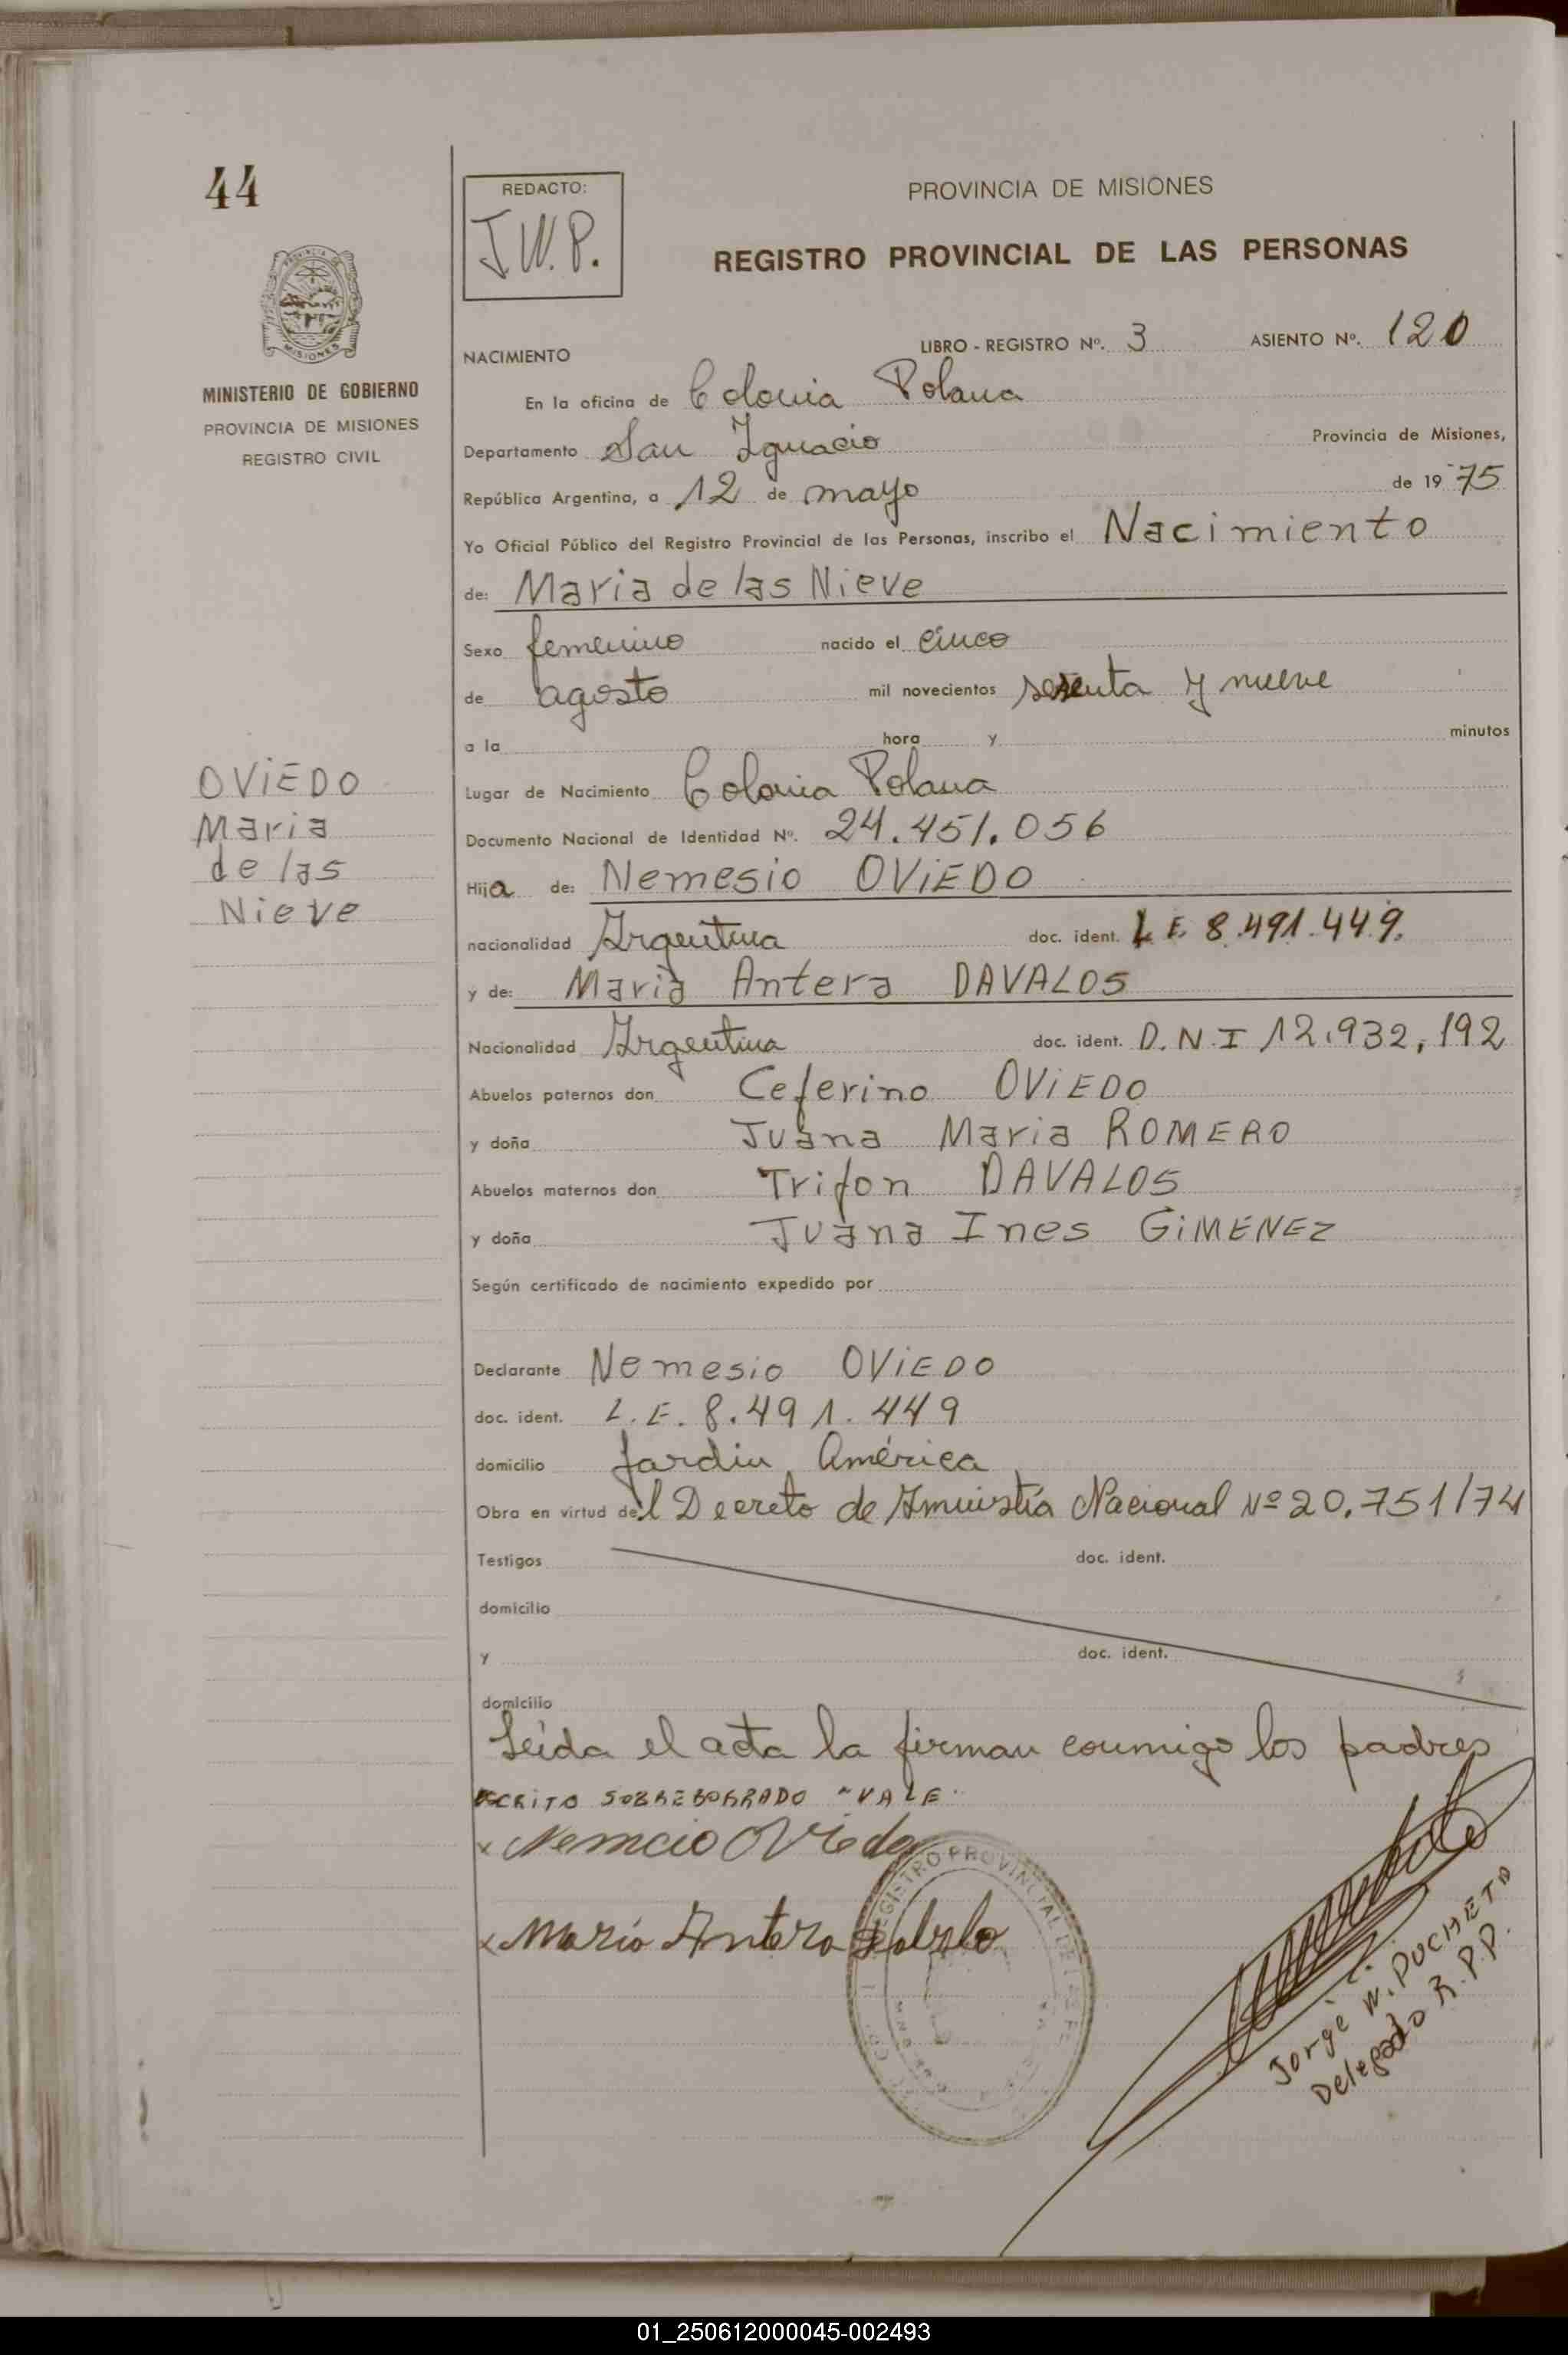 44
REDACTO:
J.W.P.
PROVINCIA DE MISIONES
REGISTRO PROVINCIAL DE LAS PERSONAS
MISIONES
MINISTERIO DE GOBIERNO
PROVINCIA DE MISIONES
REGISTRO CIVIL
LIBRO - REGISTRO Nº. 3 ASIENTO Nº. 120
NACIMIENTO
En la oficina de Colonia Polana
Departamento San Ignacio Provincia de Misiones,
República Argentina, a 12 de mayo de 1975
Yo Oficial Público del Registro Provincial de las Personas, inscribo el Nacimiento
de: Maria de las Nieve
Sexo femenino nacido el cinco
de agosto mil novecientos sesenta y nueve
a la hora y minutos
Lugar de Nacimiento Colonia Polana
Documento Nacional de Identidad Nº. 24.451.056
Hija de: Nemesio OViEDO
nacionalidad Argentina doc. ident. L.E. 8.491.449.
y de: Maria Antera DAVALOS
Nacionalidad Argentina doc. ident. D.N.I 12.932,192
Abuelos paternos don Ceferino OViEDO
y doña Juana Maria ROMERO
Abuelos maternos don Trifon DAVALOS
y doña Juana Ines GiMENEZ
Según certificado de nacimiento expedido por
Declarante Nemesio OViEDO
doc. ident. L.E. 8.491.449
domicilio Jardin América
Obra en virtud del Decreto de Amnistía Nacional Nº 20.751/74
Testigos doc. ident.
domicilio
y doc. ident.
domicilio
Leída el acta la firman conmigo los padres
ESCRITO SOBREBORRADO "VALE"
x Nemecio Oviedo
x Maria Antera Dabalo
REGISTRO PROVINCIAL DE
Jorge W. PUCHETA
Delegado R.P.P.
OViEDO
Maria
de las
Nieve
01_250612000045-002493